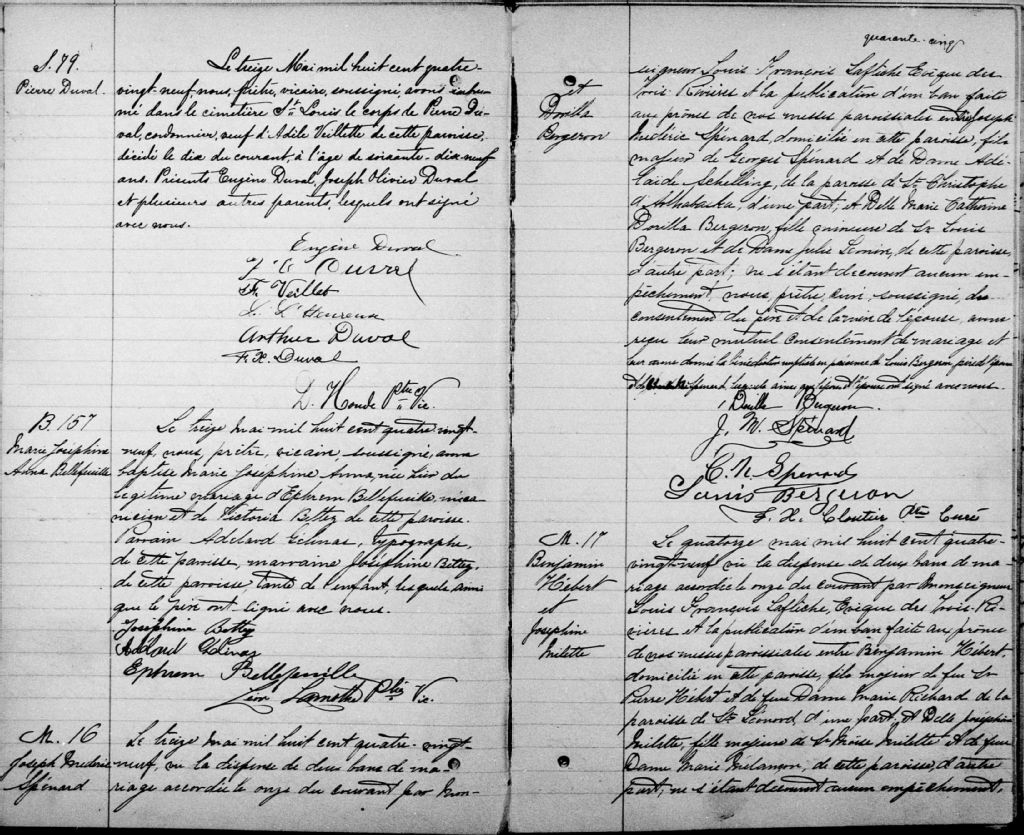 S. 79.
Pierre Duval.
Le treize Mai mil huit cent quatre-
vingt-neuf, nous, prêtre, vicaire, soussigné, avons inhu-
mé dans le cimetière St. Louis le corps de Pierre Du-
val, cordonnier, veuf d'Adèle Veillette de cette paroisse,
décédé le dix du courant, à l'âge de soixante-dix-neuf
ans. Présents Eugène Duval, Joseph Olivier Duval
et plusieurs autres parents, lesquels ont signé
avec nous.
Eugène Duval
J. O Duval
Veillet
L'Heureux
Arthur Duval
F. X. Duval
D. Houde Ptre Vic.
B. 157
Marie Joséphine
Anna Bellefeuille
Le treize mai mil huit cent quatre vingt-
neuf, nous, prêtre, vicaire, soussigné, avons
baptisé Marie Joséphine Anna, née hier du
légitime mariage d'Ephrem Bellefeuille, méca
nicien et de Victoria Bettez de cette paroisse.
Parrain Adélard Gélinas, typographe,
de cette paroisse, marraine Joséphine Bettez,
de cette paroisse, tante de l'enfant, lesquels ainsi
que le père ont signé avec nous.
Joséphine Bettez
Adélard Gélinas
Ephrem Bellefeuille
Léon Lamothe Ptre Vic.
M. 16
Joseph Médéric
Spénard
Le treize mai mil huit cent quatre-vingt-
neuf, vu la dispense de deux bans de ma-
riage accordée le onze du courant par Mon-
quarante-cinq
et
Dorilla
Bergeron
seigneur Louis François Laflèche Evêque des
Trois-Rivières et la publication d'un ban faite
au prône de nos messes paroissiales entre Joseph
Médéric Spénard, domicilié en cette paroisse, fils
majeur de Georges Spénard et de Dame Adé-
laïde Schelling, de la paroisse de St. Christophe
d'Arthabaska, d'une part; et Delle Marie Catherine
Dorilla Bergeron, fille mineure de Sr. Louis
Bergeron et de Dame Julie, de cette paroisse,
d'autre part; ne s'étant découvert aucun em-
pêchement, nous, prêtre, curé, soussigné, du
consentement du père et de la mère de l'épouse, avons
reçu leur mutuel consentement de mariage et
leur avons donné la bénédiction nuptiale en présence de Louis Bergeron, père de l'épouse
et de Spénard, lesquels ainsi que l'époux et l'épouse ont signé avec nous.
Dorilla Bergeron.
J. M. Spénard
C. N. Spenard
Louis Bergeron
F. X. Cloutier Ptre Curé
M. 17
Benjamin
Hébert
et
Joséphine
Milette
Le quatorze mai mil huit cent quatre-
vingt-neuf vu la dispense de deux bans de ma
riage accordée le onze du courant par Monseigneur
Louis François Laflèche, Evêque des Trois-Ri-
vières et la publication d'un ban faite au prône
de nos messes paroissiales entre Benjamin Hébert
domicilié en cette paroisse, fils majeur de feu Sr
Pierre Hébert et de feu Dame Marie Richard de la
paroisse de St. Léonard, d'une part, et Delle Joséphine
Milette, fille majeure de Sr Moïse Milette et de feu
Dame Marie Melançon, de cette paroisse, d'autre
part; ne s'étant découvert aucun empêchement,